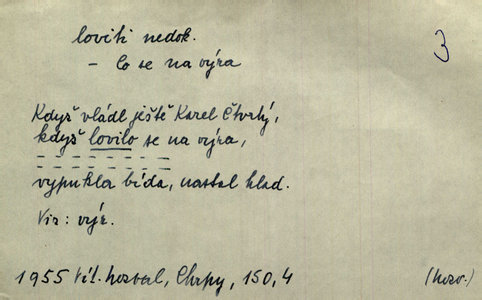 loviti nedok.
3
- lo se na výra
Když vládl ještě Karel Čtvrtý,
když lovilo se na výra,
vypukla bída, nastal hlad.
Viz: výr.
1955 Vít. Nezval, Chrpy, 150, 4